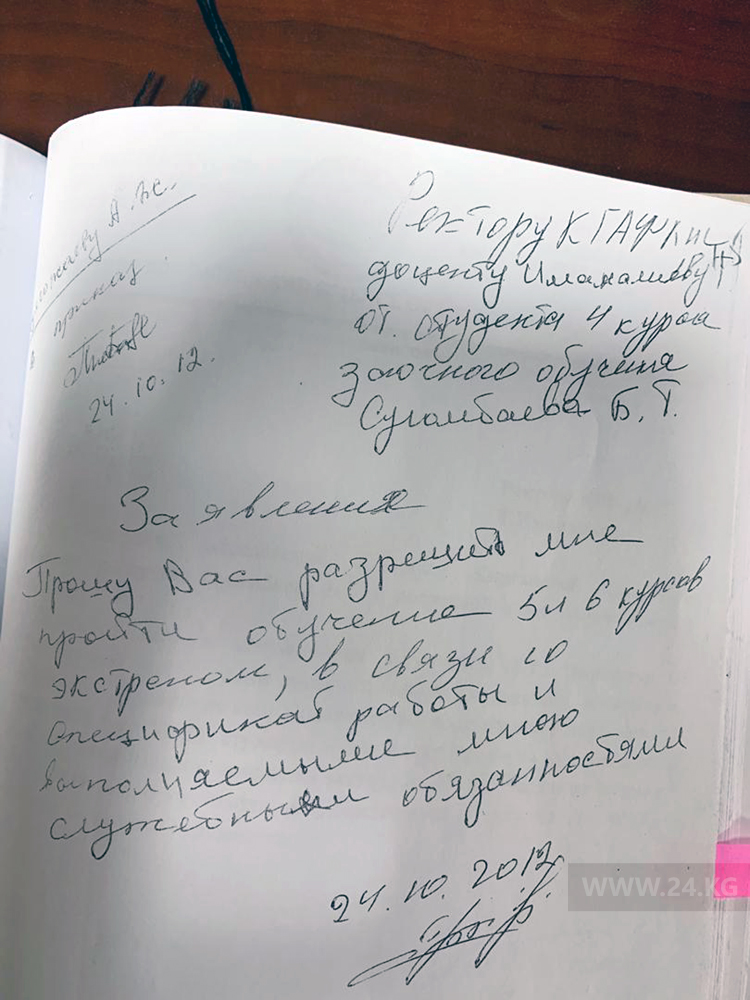 А. Ж.
приказ
24.10.12.
Ректору КГАФКиС
доценту Иманалиеву
от студента 4 курса
заочного обучения
Суганбаева Б. Т.
Заявление
Прошу Вас разрешить мне
пройти обучение 5 и 6 курсов
экстреном, в связи со
спецификат работы и
выполняемыме мною
служебными обязанностями
24.10.2012
WWW.24.KG